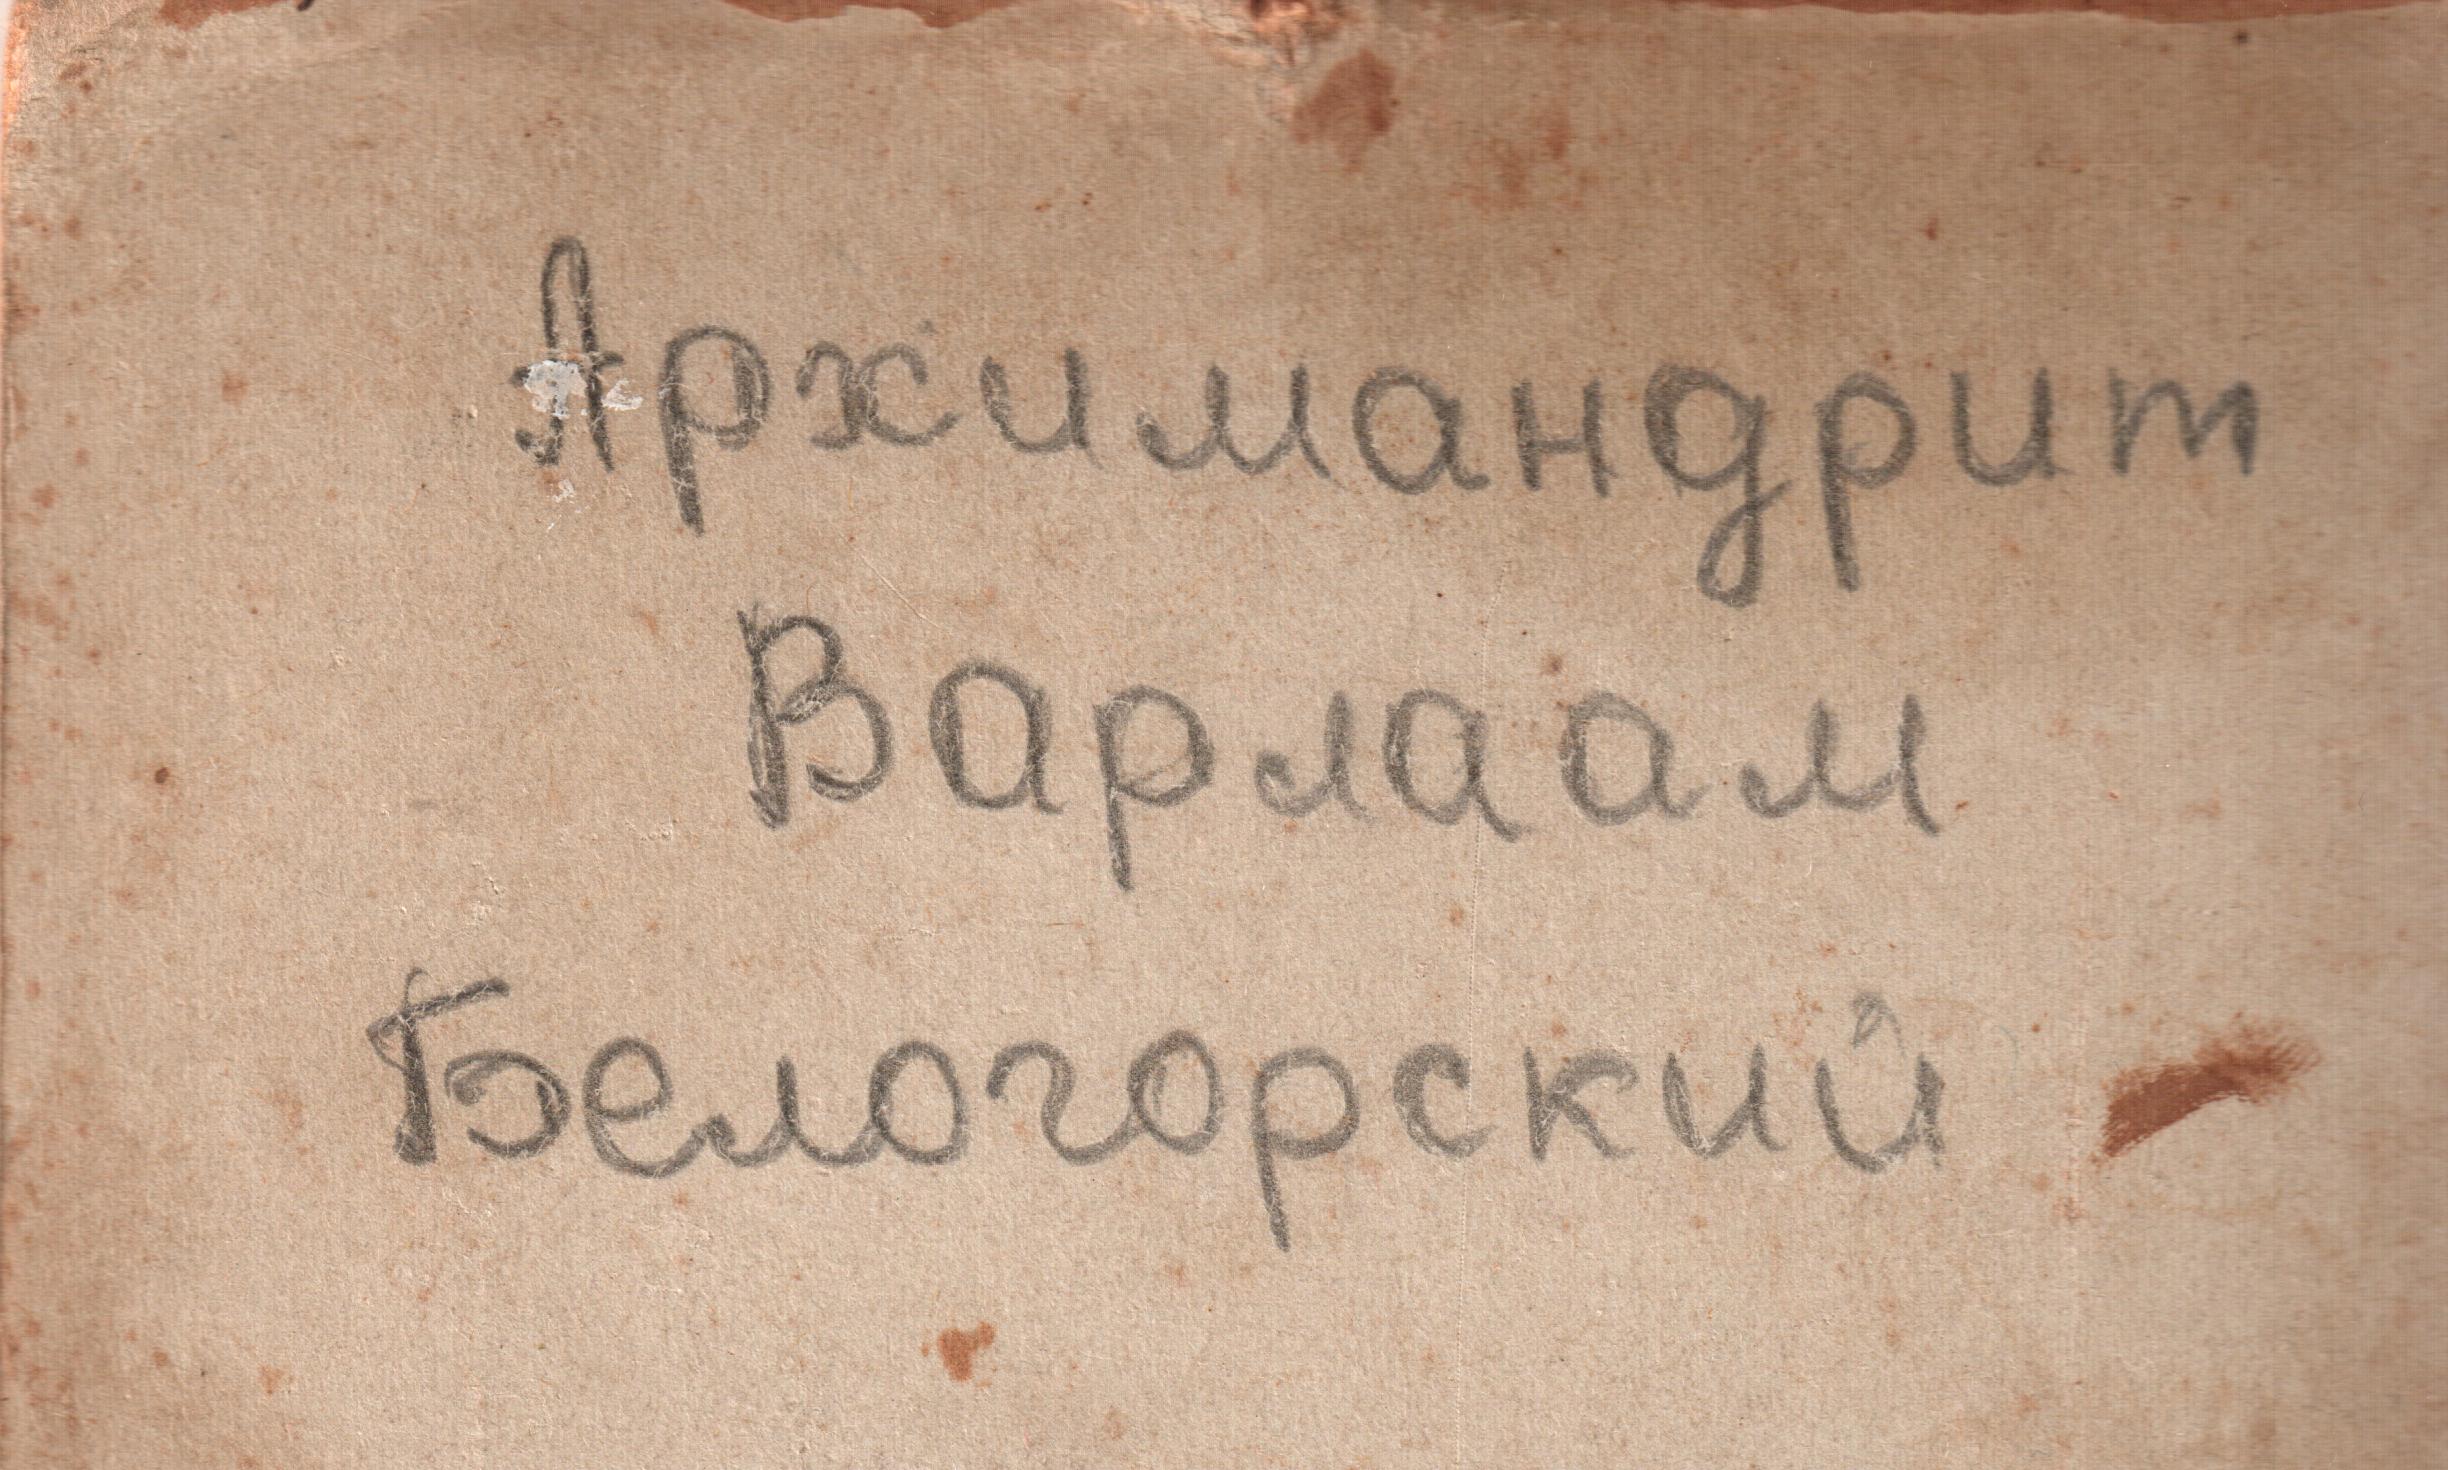 Архимандрит
Варлаам
Белогорский